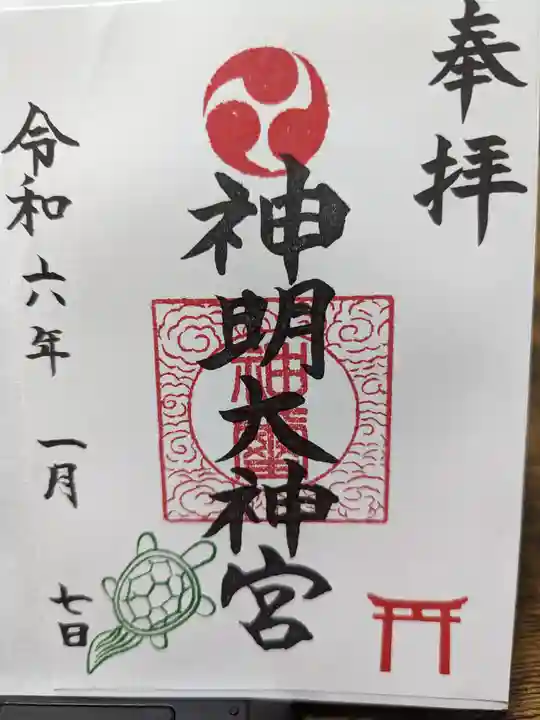 奉拝
神明大神宮
令和六年 一月 七日